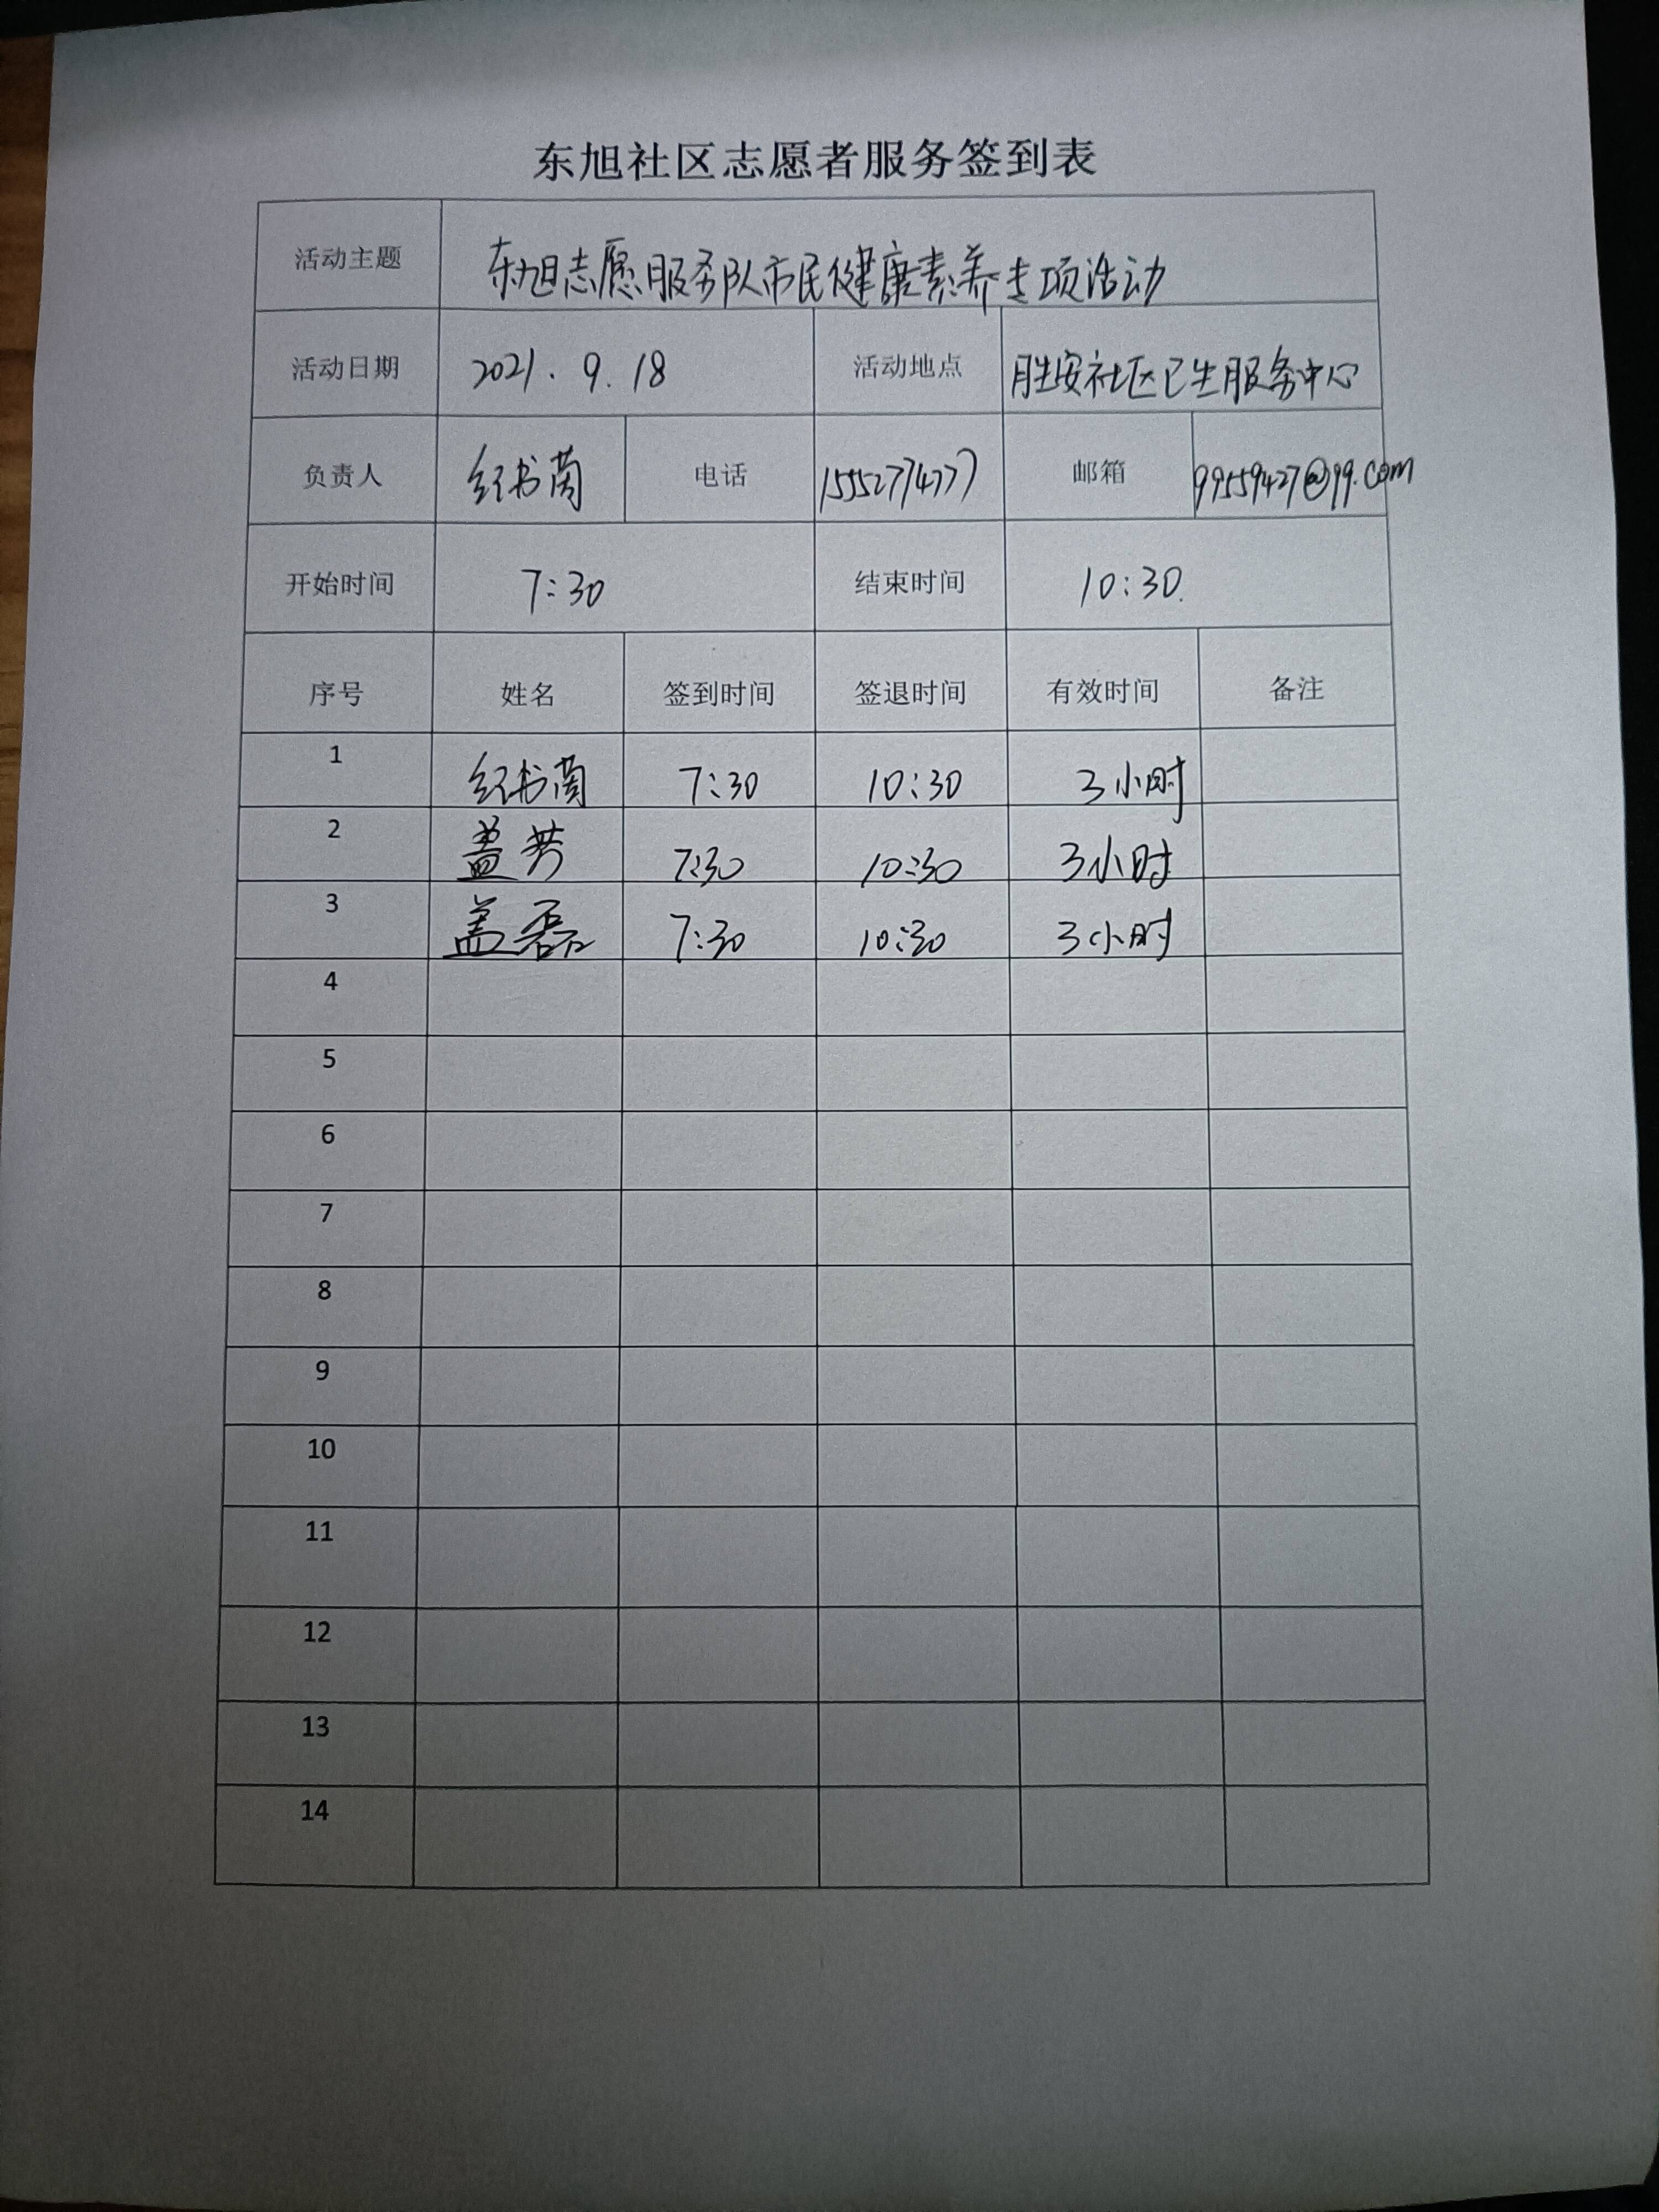 东旭社区志愿者服务签到表
活动主题 东旭志愿服务队市民健康素养专项活动
活动日期 2021.9.18 活动地点 胜安社区卫生服务中心
负责人 纪书茵 电话 15552774777 邮箱 99559427@qq.com
开始时间 7:30 结束时间 10:30
序号 姓名 签到时间 签退时间 有效时间 备注
1 纪书茵 7:30 10:30 3小时
2 盖芳 7:30 10:30 3小时
3 盖磊 7:30 10:30 3小时
4
5
6
7
8
9
10
11
12
13
14